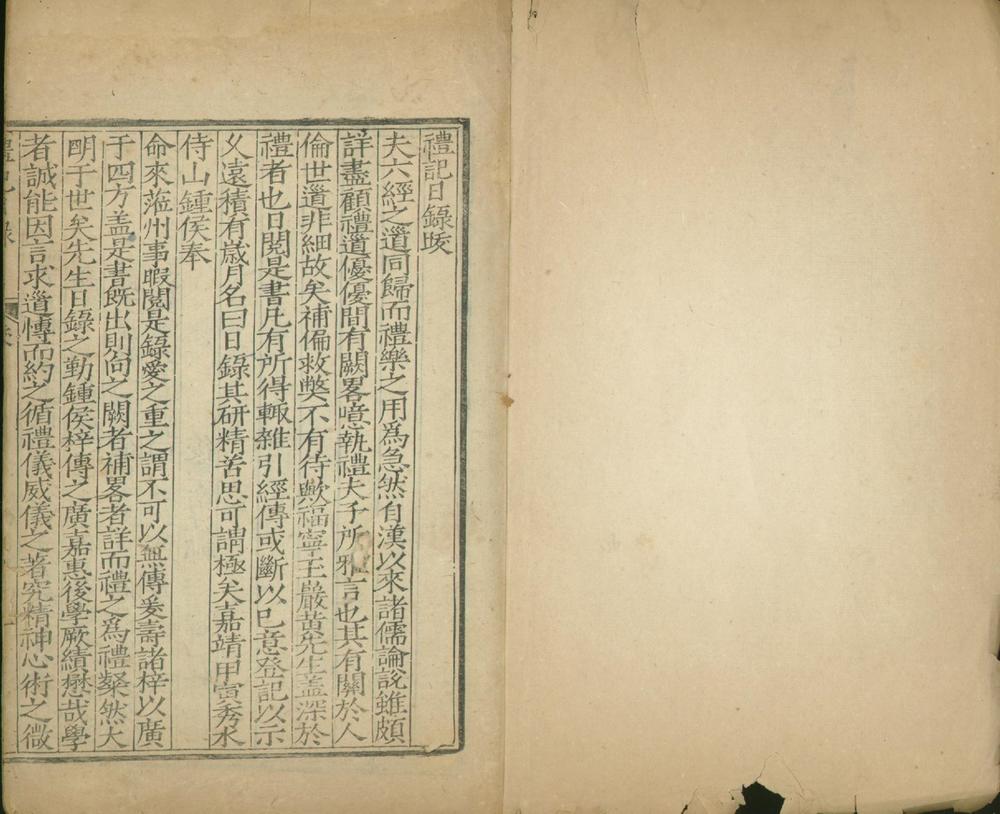 禮記日錄䟦
夫六經之道同歸而禮樂之用爲急然自漢以來諸儒論說雖頗
詳盡顧禮道優優間有闕畧噫執禮夫子所雅言也其有關於人
倫世道非細故矣補偏救獘不有待歟福寧王巖黃先生盖深於
禮者也日閱是書凡有所得輙雜引經傳或斷以巳意登記以示
久遠積有嵗月名曰日錄其研精苦思可謂極矣嘉靖甲寅秀水
侍山鍾侯奉
命來蒞州事暇閱是錄愛之重之謂不可以無傳爰壽諸梓以廣
于四方盖是書旣出則向之闕者補畧者詳而禮之爲禮粲然大
明于世矣先生日錄之勤鍾侯梓傳之廣嘉惠後學厥績懋哉學
者誠能因言求道慱而約之循禮儀威儀之著究精神心術之微